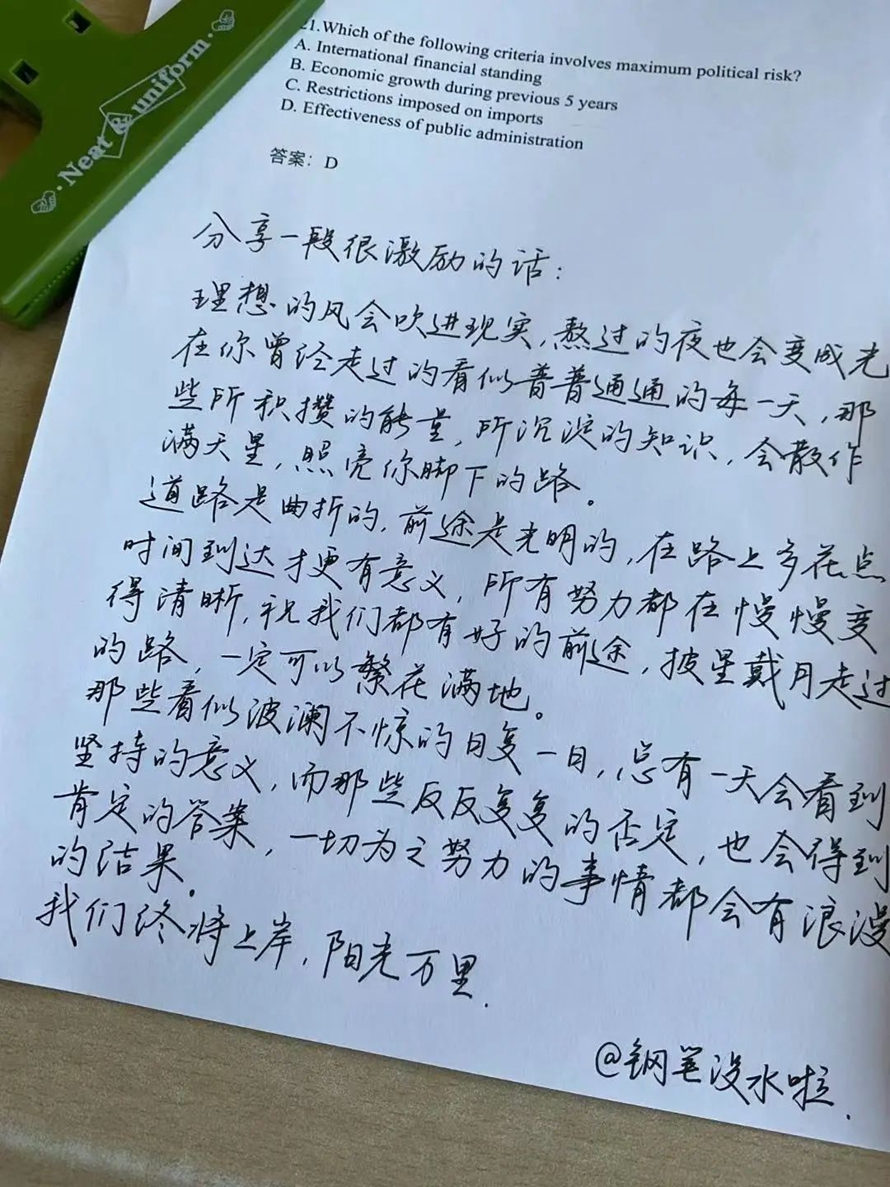 Neat & uniform
21.Which of the following criteria involves maximum political risk?
A. International financial standing
B. Economic growth during previous 5 years
C. Restrictions imposed on imports
D. Effectiveness of public administration
答案：D
分享一段很激励的话：
理想的风会吹进现实，熬过的夜也会变成光
在你曾经走过的看似普普通通的每一天，那
些所积攒的能量，所沉淀的知识，会散作
满天星，照亮你脚下的路。
道路是曲折的，前途是光明的，在路上多花点
时间到达才更有意义，所有努力都在慢慢变
得清晰，祝我们都有好的前途，披星戴月走过
的路，一定可以繁花满地。
那些看似波澜不惊的日复一日，总有一天会看到
坚持的意义，而那些反反复复的否定，也会得到
肯定的答案，一切为之努力的事情都会有浪漫
的结果。
我们终将上岸，阳光万里.
@钢笔没水啦.